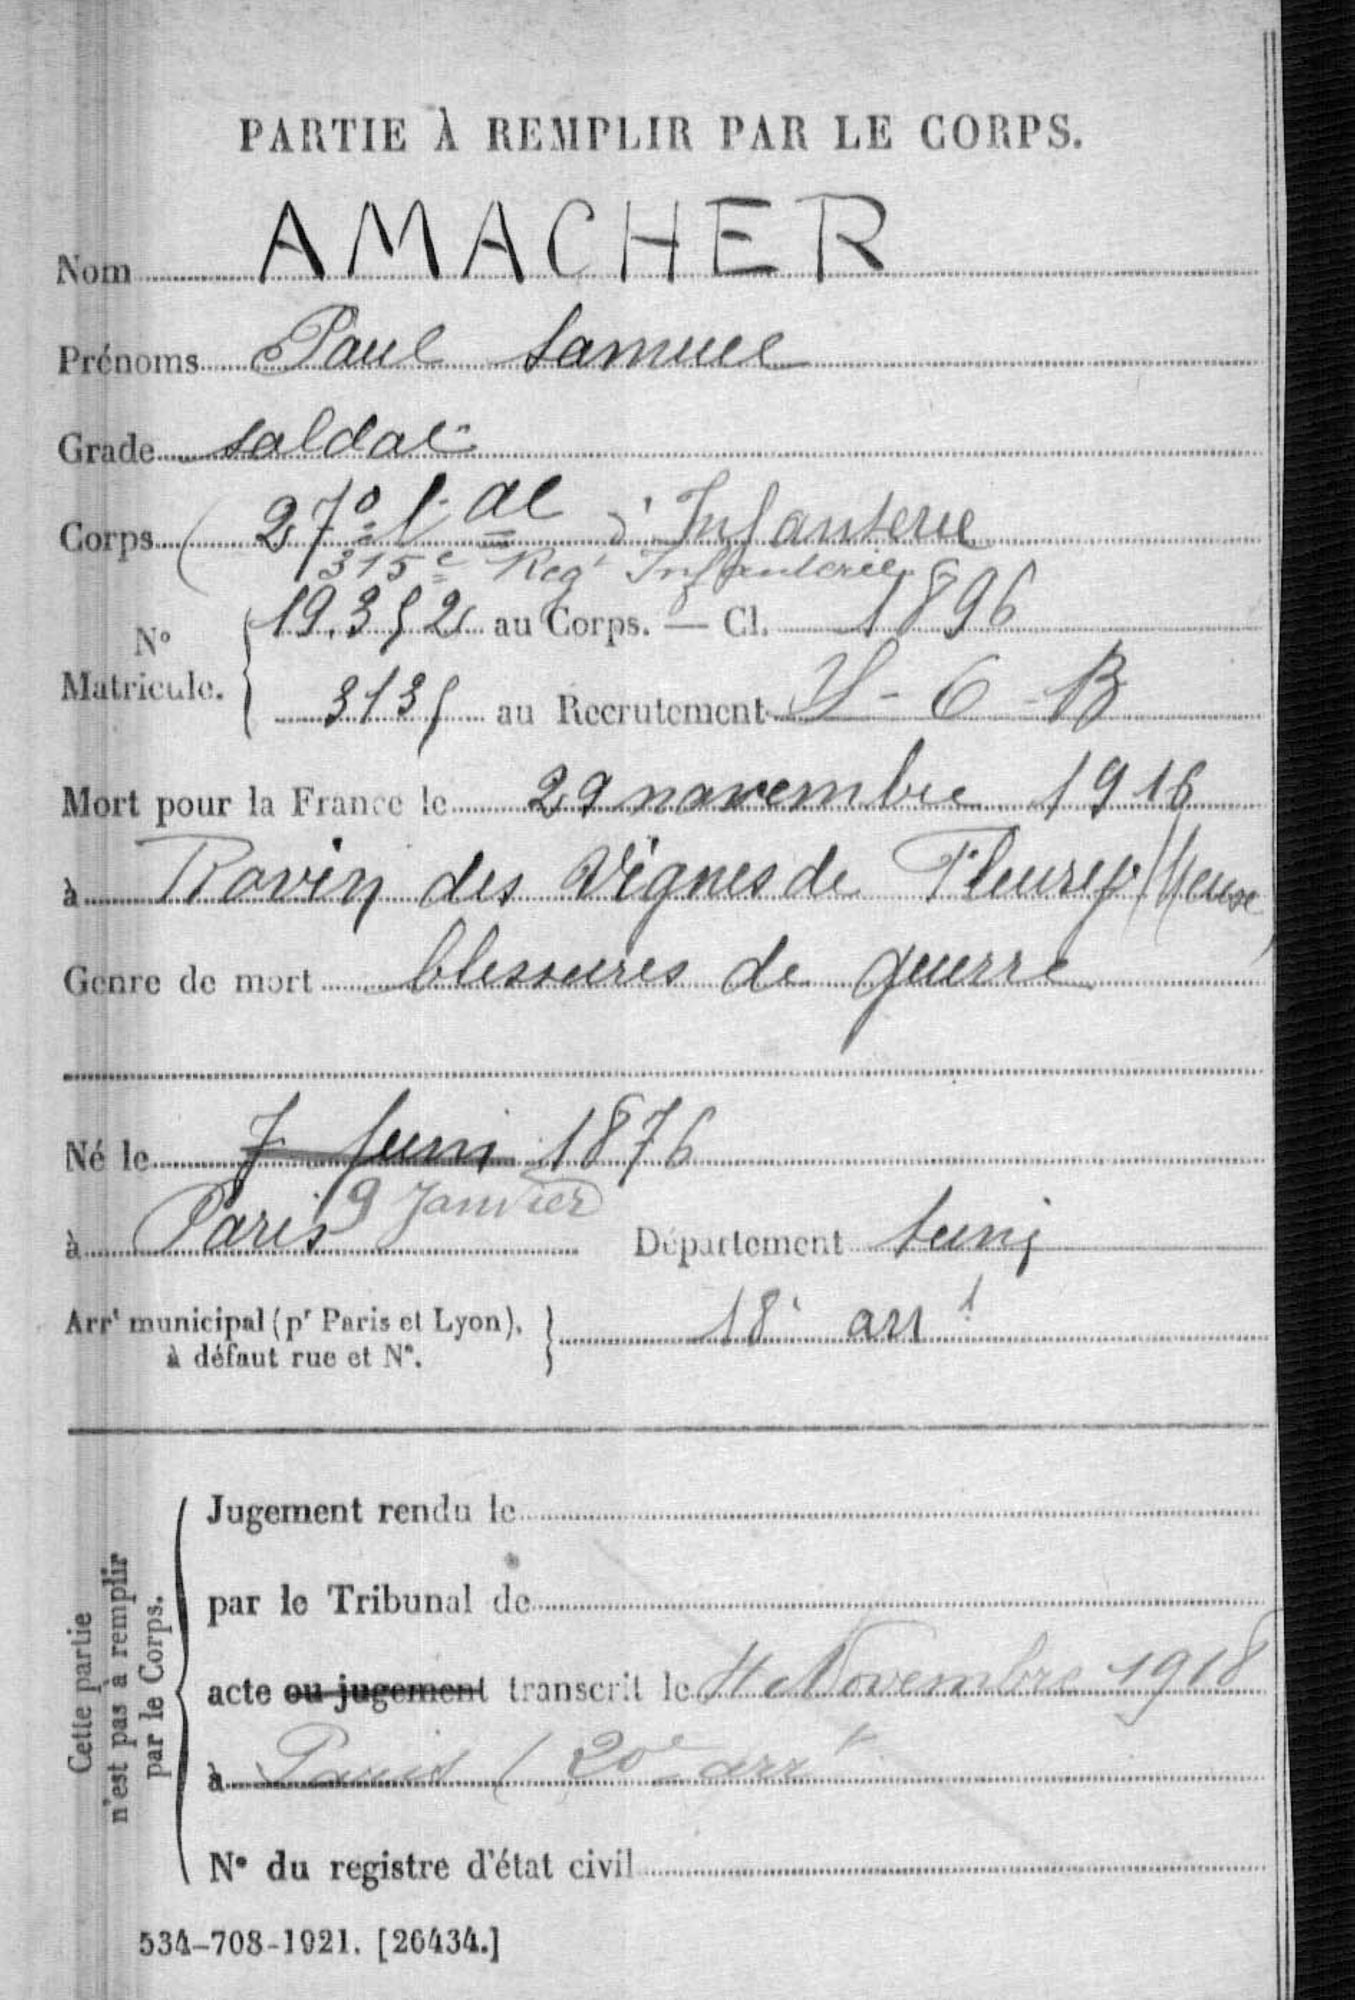 PARTIE À REMPLIR PAR LE CORPS.
Nom AMACHER
Prénoms Paul Samuel
Grade soldat
Corps ( 27e d'Infanterie
315e Regt Infanterie
N° Matricule. { 19.352 au Corps. — Cl. 1896
3135 au Recrutement - 6 - B
Mort pour la France le 29 novembre 1916
à Ravin des Vignes de Fleury (Meuse)
Genre de mort blessures de guerre
Né le 7 Juin 1876
9 Janvier
à Paris Département Seine
Arrt municipal (pr Paris et Lyon), à défaut rue et N°. } 18e arrt
Cette partie n'est pas à remplir par le Corps.
Jugement rendu le
par le Tribunal de
acte ou jugement transcrit le Novembre 1918
à Paris (20e arrt
N° du registre d'état civil
534-708-1921. [26434.]